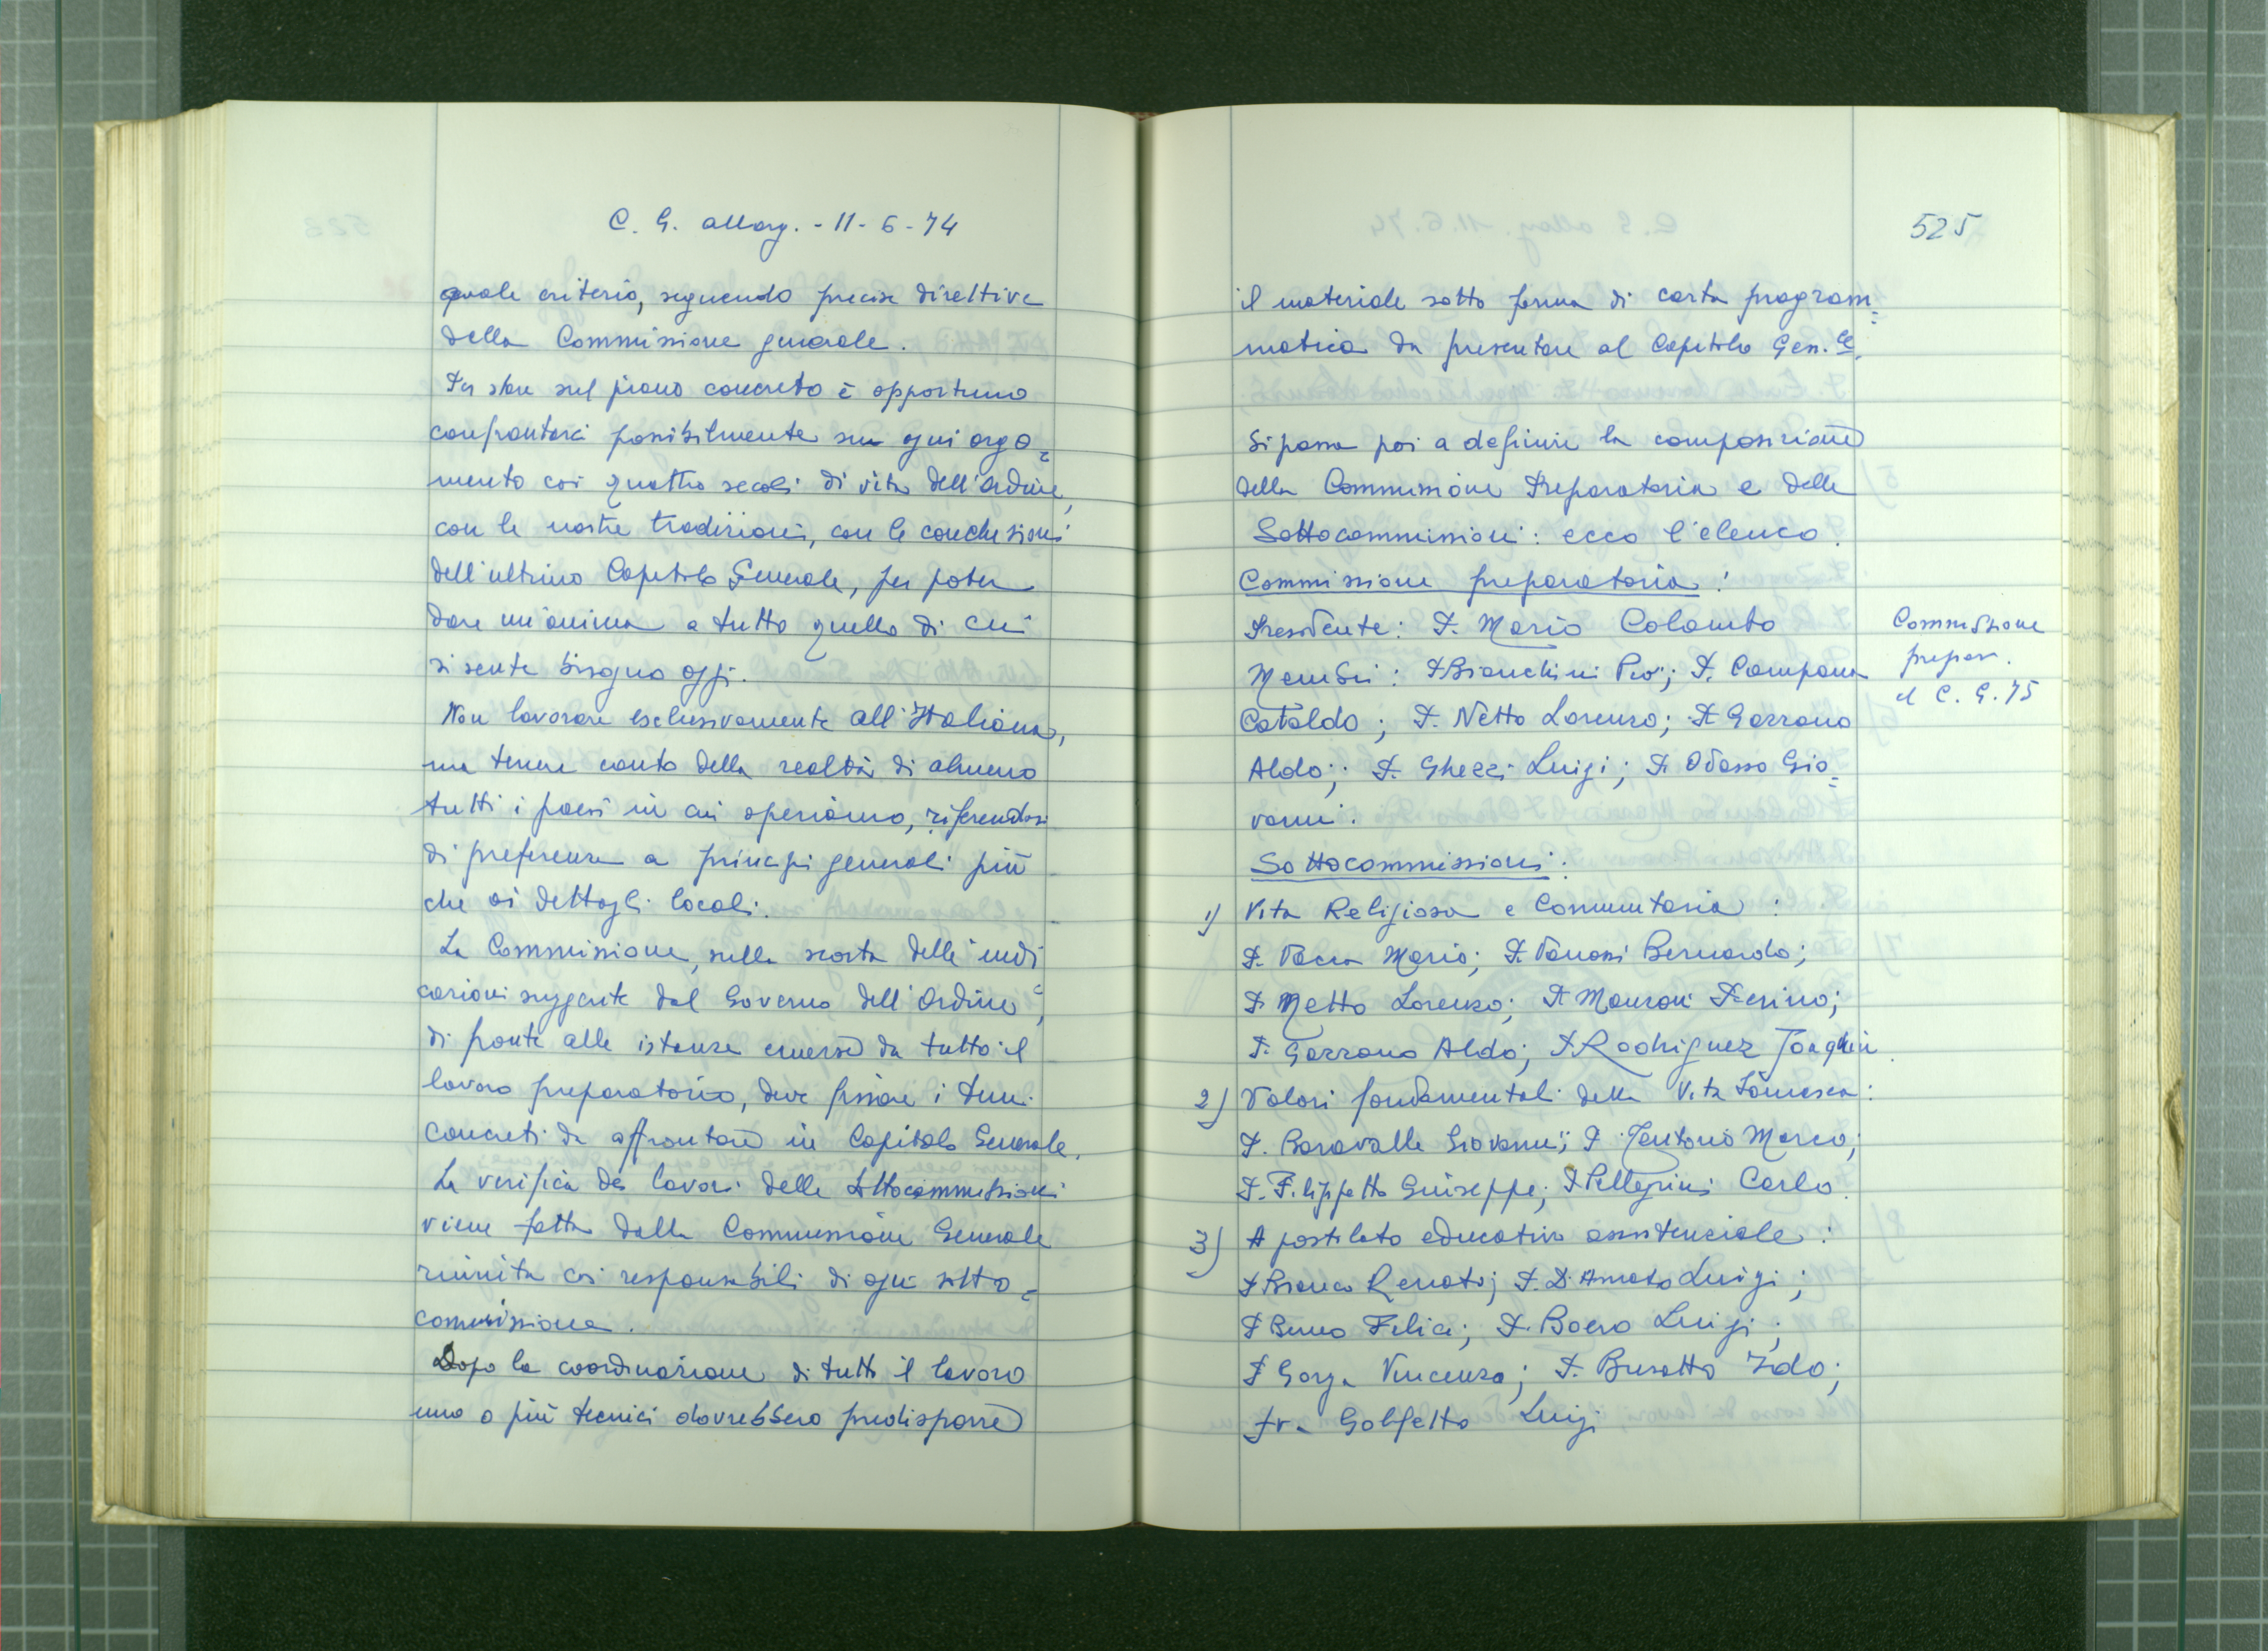 C. G. allarg. - 11-6-74
quale criterio, seguendo precise direttive
della Commissione generale.
Per stare sul piano concreto è opportuno
confrontarci possibilmente su ogni argo=
mento coi quattro secoli di vita dell'Ordine,
con le nostre tradizioni, con le conclusioni
dell'ultimo Capitolo Generale, per poter
dare un'anima a tutto quello di cui
si sente bisogno oggi.
Non lavorare esclusivamente all'Italiana,
ma tenere conto della realtà di almeno
tutti i paesi in cui operiamo, riferendosi
di preferenza a principi generali più
che ai dettagli locali.
La Commissione, sulla scorta delle indi
cazioni suggerite dal Governo dell'Ordine,
di fronte alle istanze emerse da tutto il
lavoro preparatorio, deve fissare i temi
concreti da affrontare in Capitolo Generale.
La verifica dei lavori delle sottocommissioni
viene fatta dalla Commissione Generale
riunita coi responsabili di ogni sotto=
commissione.
Dopo la coordinazione di tutto il lavoro
uno o più tecnici dovrebbero predisporre
525
il materiale sotto forma di carta program=
matica da presentare al Capitolo Gen.le.
Si passa poi a definire la composizione
della Commissione Preparatoria e delle
Sottocommissioni: ecco l'elenco.
Commissione preparatoria:
Presidente: P. Mario Colombo
Membri: P. Bianchini Pio; P. Campana
Cataldo; P. Netto Lorenzo; P. Gazzano
Aldo; P. Ghezzi Luigi; P. Odasso Gio=
vanni.
Commissione
prepar.
al C. G. 75
Sottocommissioni:
1) Vita Religiosa e Comunitaria:
P. Vacca Mario; P. Vanossi Bernardo;
P. Netto Lorenzo; P. Manzoni Pierino;
P. Gazzano Aldo; P. Rodriguez Joaquin.
2) Valori fondamentali della Vita Somasca:
P. Baravalle Giovanni; P. Tentorio Marco;
P. Filippetto Giuseppe; P. Pellegrini Carlo.
3) Apostolato educativo assistenziale:
P. Bianco Renato; P. D'Amato Luigi;
P. Beneo Felice; P. Boero Luigi;
P. Gorga Vincenzo; P. Busatto Ildo;
fr. Golfetto Luigi